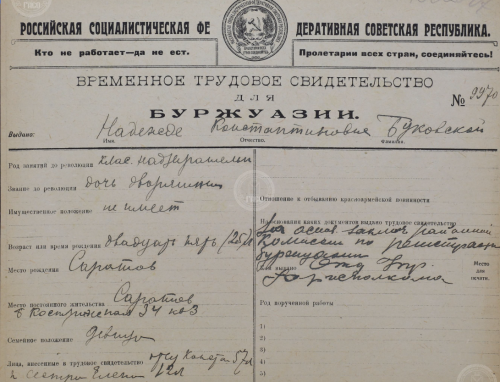 РОССИЙСКАЯ СОЦИАЛИСТИЧЕСКАЯ ФЕДЕРАТИВНАЯ СОВЕТСКАЯ РЕСПУБЛИКА.
Кто не работает—да не ест. Пролетарии всех стран, соединяйтесь!
ВРЕМЕННОЕ ТРУДОВОЕ СВИДЕТЕЛЬСТВО
ДЛЯ
БУРЖУАЗИИ.
№ 9970
Выдано: Надежде Константиновне Буховской
Имя Отчество. Фамилия.
Род занятий до революции клас. надзирателн
Звание до революции дочь дворянина
Имущественное положение не имеет
Возраст или время рождения двадцать пять (25 л
Место рождения Саратов
Место постоянного жительства Саратов
Б Кострижская 34 кв 3
Семейное положение девица
Лица, внесенные в трудовое свидетельство 57 л
и сестра Елена 12 л
Отношение к отбыванию красноармейской повинности
На основании каких документов выдано трудовое свидетельство
За основ. районной
Комиссии по регистрации
буржуазии
Кем выдано Отд Упр.
Горисполкома
Места для печати.
Род порученной работы
1)
2)
3)
4)
5)
6)